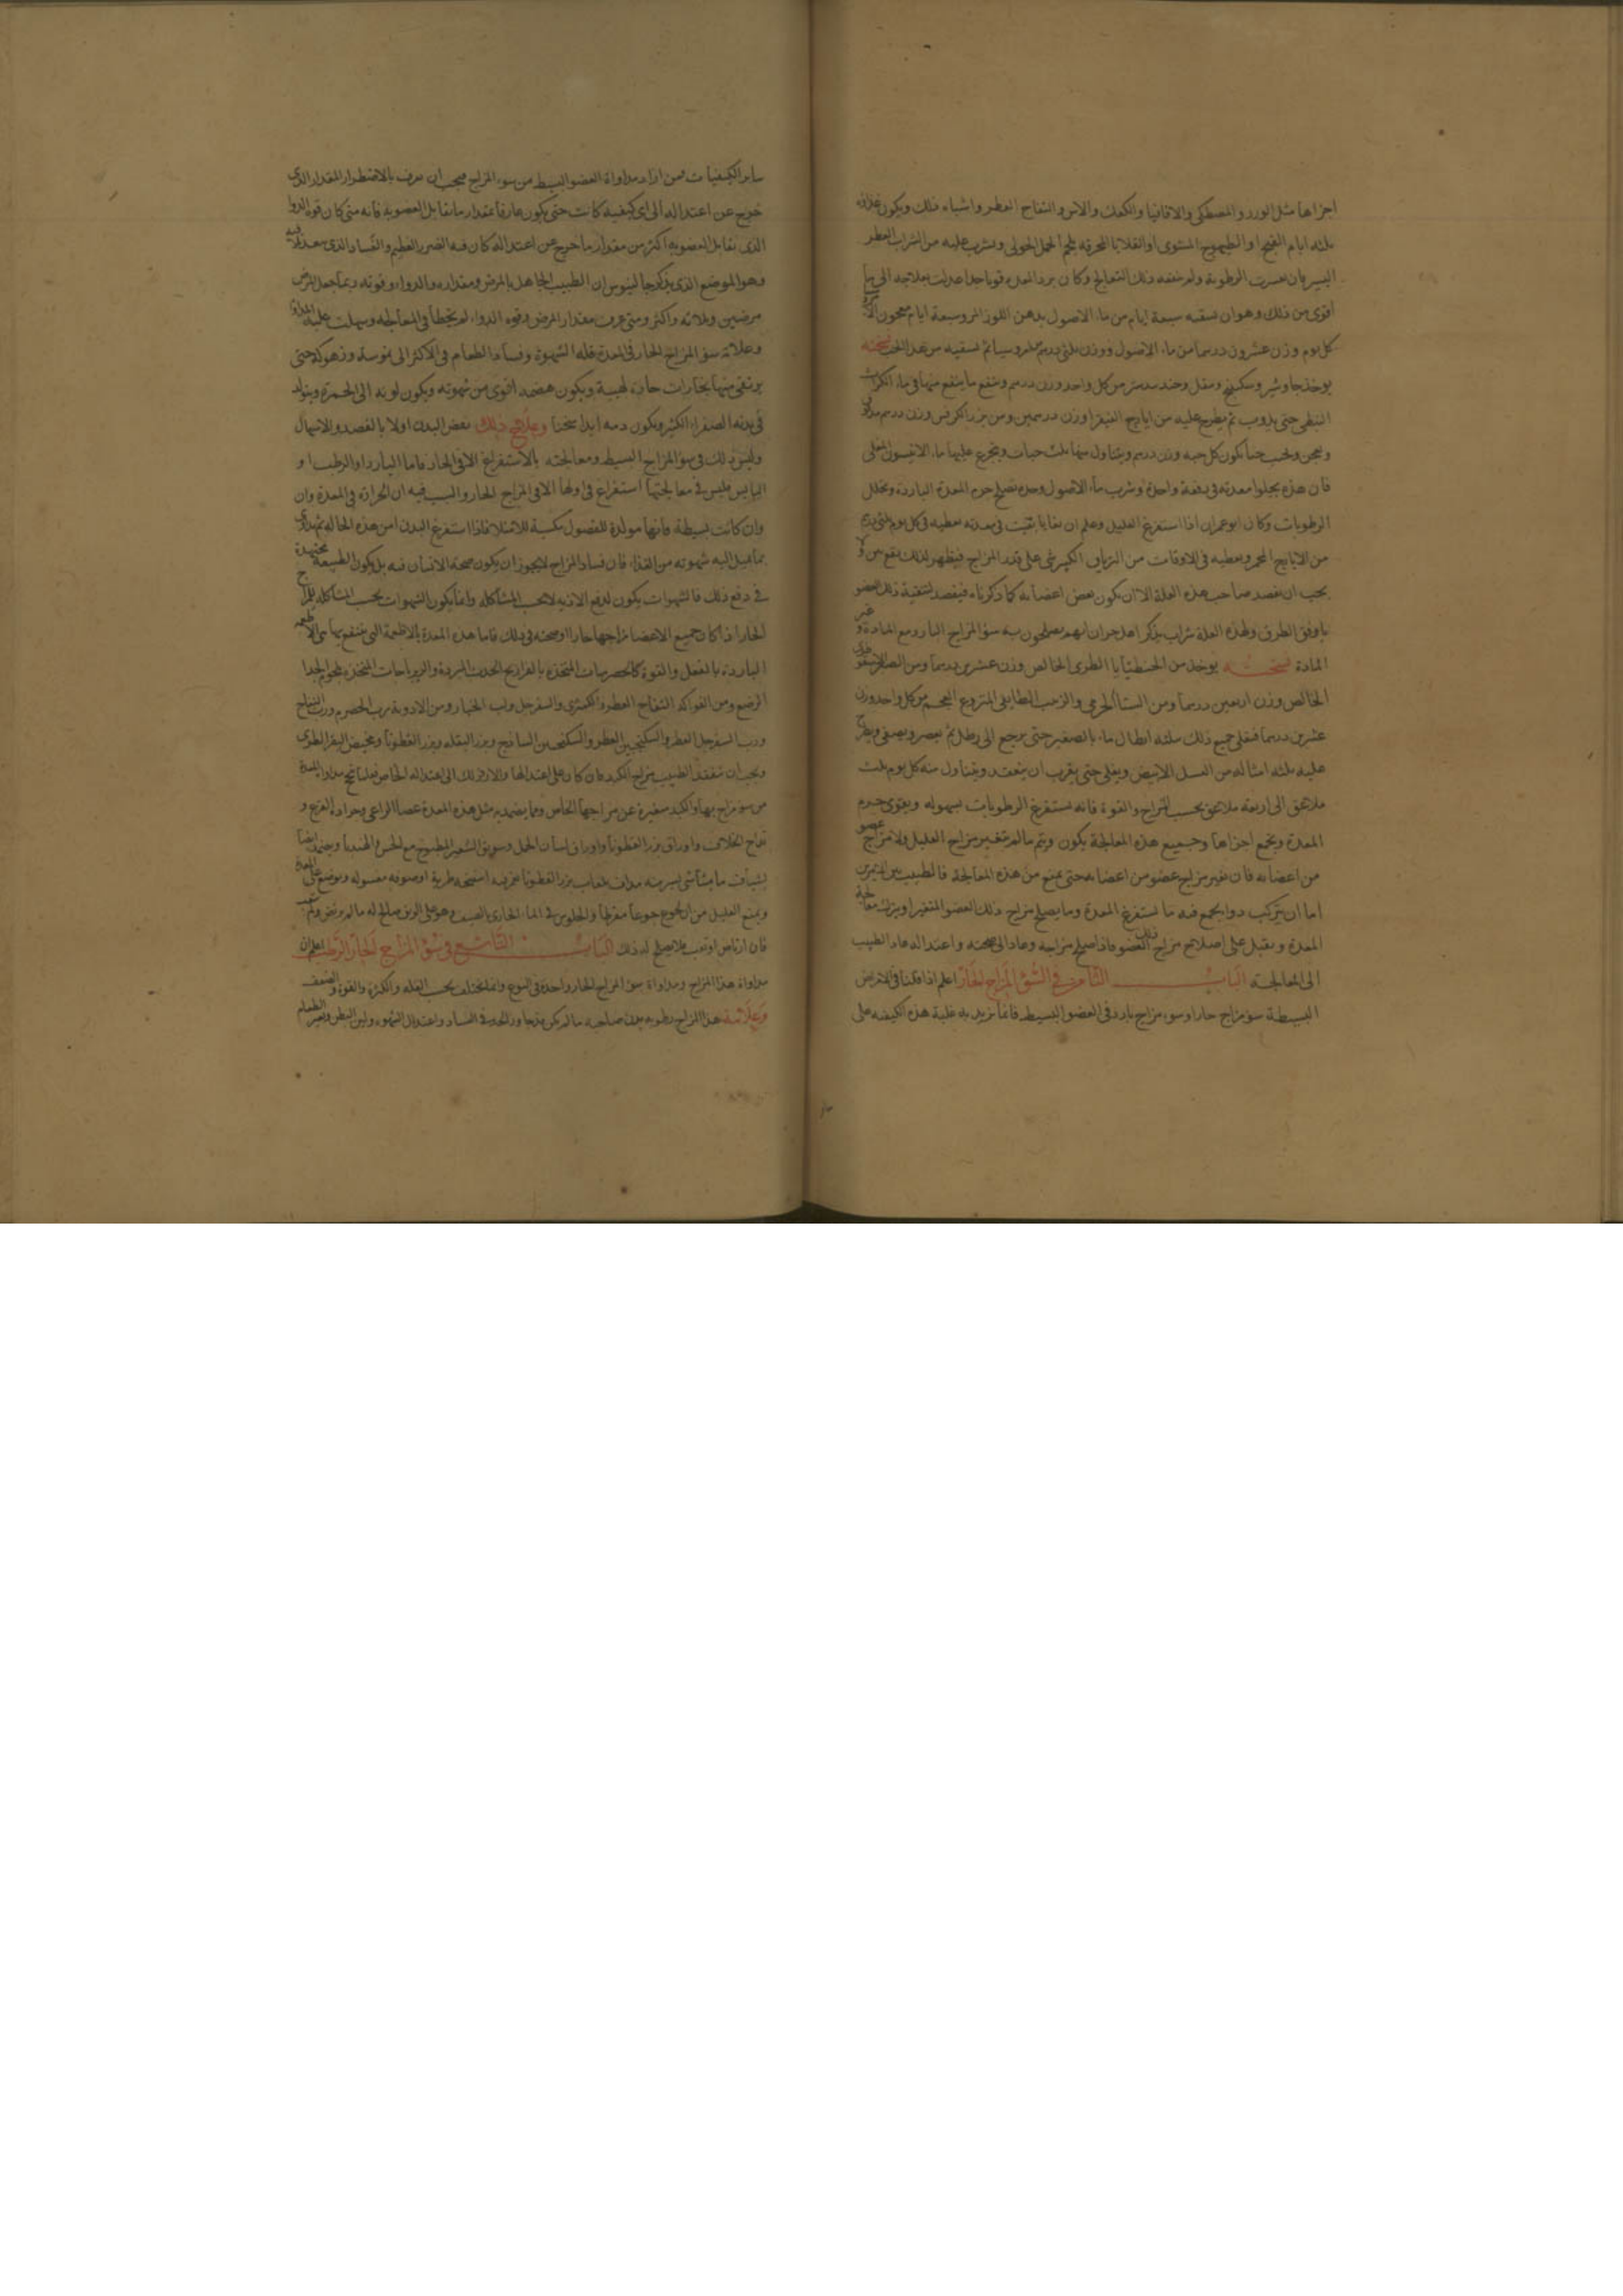 اجزاها مثل الورد والمصطكى والاقاقيا والكعك والاس والتفاح العطر واشباه ذلك ويكون غذاوه
ثلثه ايام القبج او الطيهوج المشوى او القلايا المحرقه بلحم الحمل الحولى ويشرب عليه من الشراب العطر
اليسير فان عسرت الرطوبة ولم ذلك التعالج وكان برد المعدة قويا جدا عدلت بعلاجه الى ما
اقوى من ذلك وهو ان تسقيه سبعة ايام من ماء الاصول بدهن اللوز المر وسبعة ايام معجون
كل يوم وزن عشرون درهما من ماء الاصول ووزن ثلثى درهم ثم تسقيه من هذا الحب نسخته
يوخذ جاوشير وسكبينج ومقل وجندبيدستر من كل واحد وزن درهم وينقع ما ينقع منها فى ماء الكراث
النبطى حتى يذوب ثم يطرح عليه من ايارج الفيقرا وزن درهمين ومن بزر الكرفس وزن درهم
ويعجن ويحبب حبا يكون كل حبه وزن درهم ويتناول منها ثلث حبات ويتجرع عليها ماء الانيسون المغلى
فان هذه يجلوا معدته فى دفعة واحدة وشرب ماء الاصول وحده يصلح جرم المعدة الباردة ويحلل
الرطوبات وكان ابو عمران اذا استفرغ العليل وعلم ان بقايا بقيت فى معدته يعطيه فى كل يوم ثلثى درهم
من الايارج المخمر ويعطيه فى الاوقات من الترياق الكبير شى على قدر المزاج فيظهر لذلك نفع من
يجب ان يفصد صاحب هذه العلة الا ان يكون بعض اعضائه كما ذكرناه فيفصد لتنقية ذلك العضو
باوفق الطرق ولهذه العلة شراب يذكر اهل حران انهم يصلحون به سوء المزاج البارد مع المادة وغير
المادة نسخته يوخذ من الحنطيانا الطرى الخالص وزن عشرين درهما ومن الصبر
الخالص وزن اربعين درهما ومن السنا الحرمى والزبيب الطايفى المنزوع العجم من كل واحد وزن
عشرين درهما فيغلى جميع ذلك بثلثه ارطال ماء بالصغير حتى يرجع الى رطل ثم يعصر ويصفى ويطرح
عليه ثلثه امثاله من العسل الابيض ويغلى حتى يقرب ان ينعقد ويتناول منه كل يوم ثلث
ملاعق الى اربعه ملاعق بحسب المزاج والقوة فانه يستفرغ الرطوبات بسهوله ويقوى جرم
المعدة ويجمع اجزاها وجميع هذه المعالجة يكون ويتم ما لم يتغير مزاج العليل ولا مزاج عضو
من اعضائه فان تغير مزاج عضو من اعضائه حتى يمنع من هذه المعالجة فالطبيب بين امرين
اما ان يتركب دوا يجمع فيه ما يستفرغ المعدة وما يصلح مزاج ذلك العضو المتغير او يترك معالجة
المعدة ويقبل على اصلاح مزاج ذلك العضو فاذا صلح مزاجه وعاد الى صحته واعتداله عاد الطبيب
الى المعالجة الباب الثامن فى السوء المزاج الحار اعلم اذا قلنا فى الامراض
البسيطة سوء مزاج حار او سوء مزاج بارد فى العضو البسيط فانما نريد به غلبة هذه الكيفيه على
ساير الكيفيات فمن اراد مداواة العضو البسيط من سوء المزاج فيجب ان يعرف بالاضطرار المقدار الذى
خرج عن اعتداله الى اى كيفية كانت حتى يكون عارفا بمقدار ما يقابل العضو به فانه متى كان قوة الدوا
الذى يقابل العضو به اكثر من مقدار ما خرج عن اعتداله كان فيه الضرر العظيم والفساد الذى
وهو الموضع الذى يذكر جالينوس ان الطبيب الجاهل بالمرض ومقداره والدواء وقوته ربما جعل المرض
مرضين وثلاثه واكثر ومتى عرف مقدار المرض وقوه الدواء لم يخطأ فى المعالجة وسهلت عليه المداواة
وعلامة سوء المزاج الحار فى المعدة قلة الشهوة وفساد الطعام فى الاكثر الى وزهوكة حتى
يرتقى منها بخارات حارة لهبية ويكون هضمه اقوى من شهوته ويكون لونه الى الحمرة ويتولد
فى بدنه الصفراء الكثير ويكون دمه ابدا سخنا وعلاج ذلك نفض البدن اولا بالفصد والاسهال
وليس ذلك فى سوء المزاج البسيط ومعالجته بالاستفراغ الا فى الحار فاما البارد او الرطب او
اليابس فليس فى معالجتها استفراغ فى اولها الا فى المزاج الحار والسبب فيه ان الحرارة فى المعدة وان
وان كانت بسيطة فانها مولدة للفضول مكسبة للامتلا فاذا استفرغ البدن امن هذه الحالة ثم يداوى
بما يميل اليه شهوته من الغذاء فان فساد المزاج لا يجوز ان يكون صحة الانسان فيه بل يكون الطبيعة مجتهدة
فى دفع ذلك فالشهوات يكون لدفع الاذيه لا بحسب المشاكله وانما يكون الشهوات بحسب المشاكله للمزاج
الحار اذا كان جميع الاعضا مزاجها حارا وصحته فى ذلك فاما هذه المعدة بالاطعمة التى ينتفع بها هى الاطعمه
الباردة بالفعل والقوة كالحصرميات المتخذه بالفراريج الحدث المبردة والزيرباجات المتخذه بلحوم الجدا
الرضع ومن الفواكه التفاح العطر والكمثرى والسفرجل ولب الخيار ومن الادوية رب الحصرم ورب التفاح
ورب السفرجل العطر والسكنجبين العطر والسكنجبين الساذج وبزر البقله وبزر القطونا ومخيض البقر الطرى
ويجب ان يتفقد الطبيب مزاج الكبد فان كان على اعتدالها والا رد ذلك الى اعتداله الخاص مداوا المعدة
من سوء مزاج بها والكبد متغيرة عن مزاجها الخاص ومما يضمد به مثل هذه المعدة عصا الراعى وجرادة القرع و
الخلاف واوراق بزر القطونا واوراق لسان الحمل وسويق الشعير المطبوخ مع الخس والهندبا ايضا
بشياف ماميثا شى يسير منه مداف بلعاب بزر القطونا اسفنجه طرية او صوفه مغسوله ويوضع على المعدة
ويمنع العليل من ان يجوع جوعا مفرطا والجلوس فى الماء الجارى بالصيف وهو على الريق صالح له ما لم يرتض ولم يتعب
فان ارتاض او تعب فلا يصلح له ذلك الباب التاسع فى سوء المزاج الحار الرطب اعلم ان
مداواة هذا المزاج ومداواة سوء المزاج الحار واحدة فى النوع وانما يختلف بحسب القله والكثرة والقوة والضعف
وعلامة هذا المزاج رطوبه بدن صاحبه ما لم يكن قد جاوز الحد فى الفساد واعتدال الشهوه ولين البطن وتغير الطعام